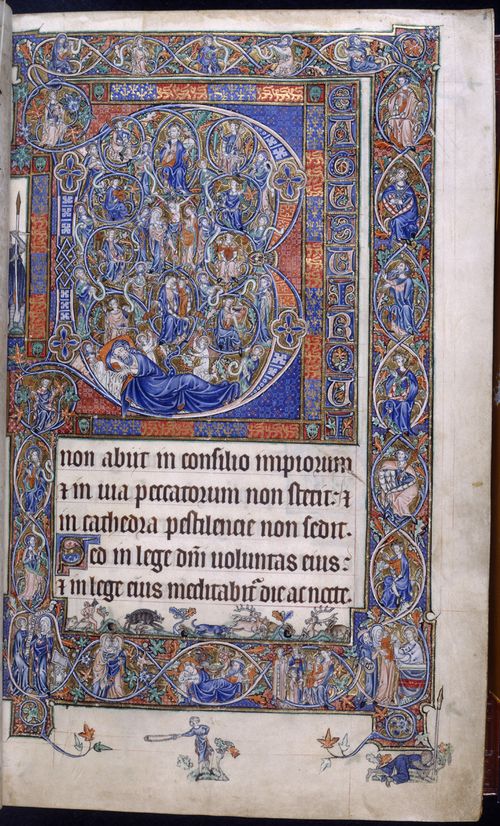 B
EATUS UIR
non abiit in consilio impiorum
⁊ in uia peccatorum non stetit: ⁊
in cathedra pestilencie non sedit.
Sed in lege dn̄i uoluntas eius:
⁊ in lege eius meditabit᷑ die ac nocte.